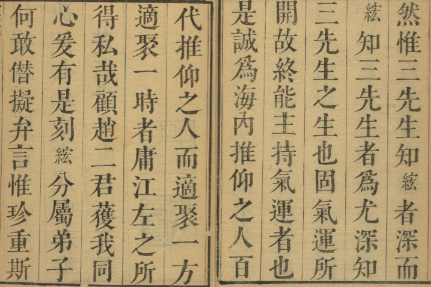 然惟三先生知絃者深而
絃知三先生者爲尤深知
三先生之生也固氣運所
開故終能主持氣運者也
是誠爲海内推仰之人百
代推仰之人而適聚一方
適聚一時者庸江左之所
得私哉顧趙二君獲我同
心爰有是刻絃分屬弟子
何敢僣擬弁言惟珍重斯